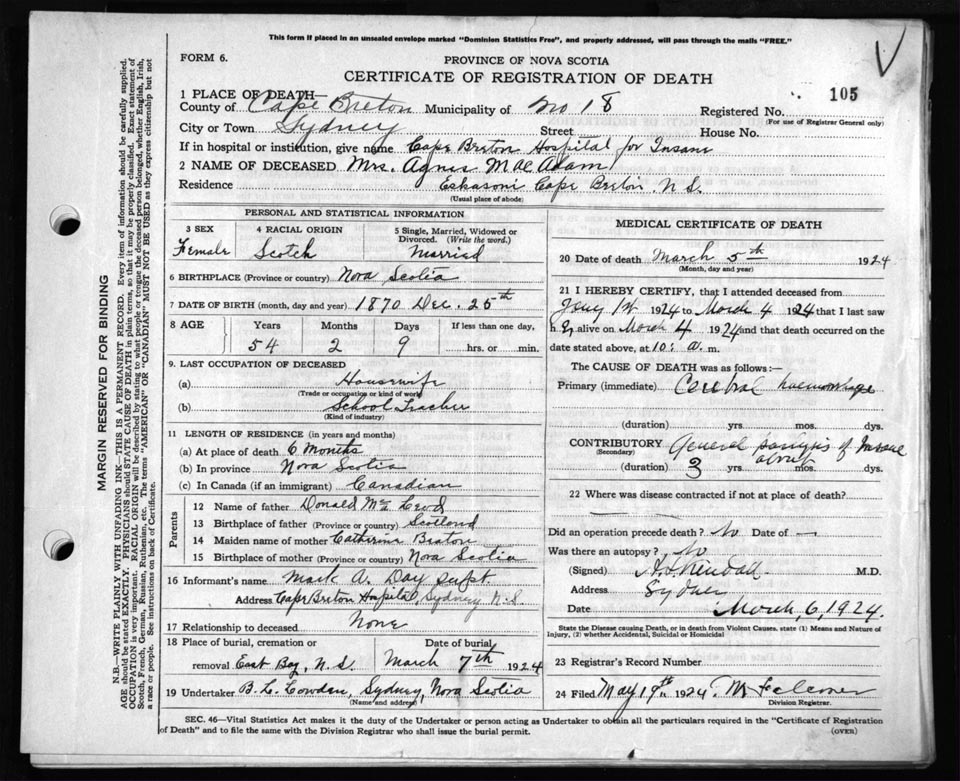 This form if placed in an unsealed envelope marked "Dominion Statistics Free", and properly addressed, will pass through the mails "FREE."
FORM 6.
PROVINCE OF NOVA SCOTIA
CERTIFICATE OF REGISTRATION OF DEATH
105
1 PLACE OF DEATH—
County of Cape Breton Municipality of No 18 Registered No.
(For use of Registrar General only)
City or Town Sydney Street House No.
If in hospital or institution, give name Cape Breton Hospital for Insane
2 NAME OF DECEASED Mrs. Agnes MacAdam
Residence Eskasoni Cape Breton N.S.
(Usual place of abode)
PERSONAL AND STATISTICAL INFORMATION
3 SEX 4 RACIAL ORIGIN 5 Single, Married, Widowed or Divorced. (Write the word.)
Female Scotch Married
6 BIRTHPLACE (Province or country) Nova Scotia
7 DATE OF BIRTH (month, day and year) 1870 Dec. 25th
8 AGE Years Months Days If less than one day,
54 2 9 hrs. or min.
9. LAST OCCUPATION OF DECEASED
(a) Housewife
(Trade or occupation or kind of work)
(b) School Teacher
(Kind of industry)
11 LENGTH OF RESIDENCE (in years and months)
(a) At place of death 6 Months
(b) In province Nova Scotia
(c) In Canada (if an immigrant) Canadian
Parents
12 Name of father Donald Mc Leod
13 Birthplace of father (Province or country) Scotland
14 Maiden name of mother Catherine Beaton
15 Birthplace of mother (Province or country) Nova Scotia
16 Informant's name Mark A. Day supt
Address Cape Breton Hospital, Sydney N.S.
17 Relationship to deceased None
18 Place of burial, cremation or Date of burial
removal East Bay, N.S. March 7th 1924
19 Undertaker B. L. Cowden, Sydney, Nova Scotia
(Name and address)
MEDICAL CERTIFICATE OF DEATH
20 Date of death March 5th 1924
(Month, day and year)
21 I HEREBY CERTIFY, that I attended deceased from
Jany 1st 1924 to March 4 1924 that I last saw
h er alive on March 4 1924 and that death occurred on
date stated above, at 10: a. m.
The CAUSE OF DEATH was as follows:—
Primary (immediate) Cerebral haemorrhage
(duration) yrs. mos. dys.
CONTRIBUTORY General paralysis of Insane
(Secondary)
about
(duration) 3 yrs. mos. dys.
22 Where was disease contracted if not at place of death?
Did an operation precede death? No Date of —
Was there an autopsy? No
(Signed) Kendall M.D.
Address Sydney
Date March, 6, 1924.
State the Disease causing Death, or in death from Violent Causes, state (1) Means and Nature of Injury, (2) whether Accidental, Suicidal or Homicidal
23 Registrar's Record Number
24 Filed May 19th 1924
Division Registrar.
SEC. 46—Vital Statistics Act makes it the duty of the Undertaker or person acting as Undertaker to obtain all the particulars required in the "Certificate of Registration
of Death" and to file the same with the Division Registrar who shall issue the burial permit.
(OVER)
MARGIN RESERVED FOR BINDING
N.B.—WRITE PLAINLY WITH UNFADING INK—THIS IS A PERMANENT RECORD. Every item of information should be carefully supplied.
AGE should be stated EXACTLY. PHYSICIANS should STATE CAUSE OF DEATH in plain terms, so that it may be properly classified. Exact statement of
OCCUPATION is very important. RACIAL ORIGIN will be described by stating to what people or tongue the deceased person belonged, whether English, Irish,
Scotch, French, German, Russian, Ruthenian, etc. The terms "AMERICAN" or "CANADIAN" MUST NOT BE USED as they express citizenship but not
a race or people. See instructions on back of Certificate.